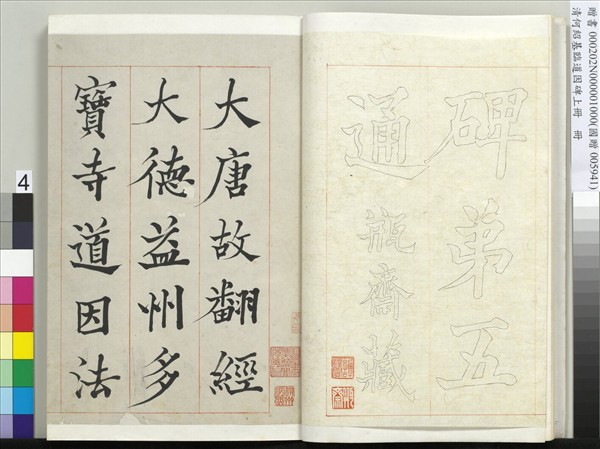 碑第五
通瓶齋藏
大唐故翻經
大德益州多
寶寺道因法
贈書 000202N000001000(國贈 005941)
清何紹基臨道因碑上冊 冊
4